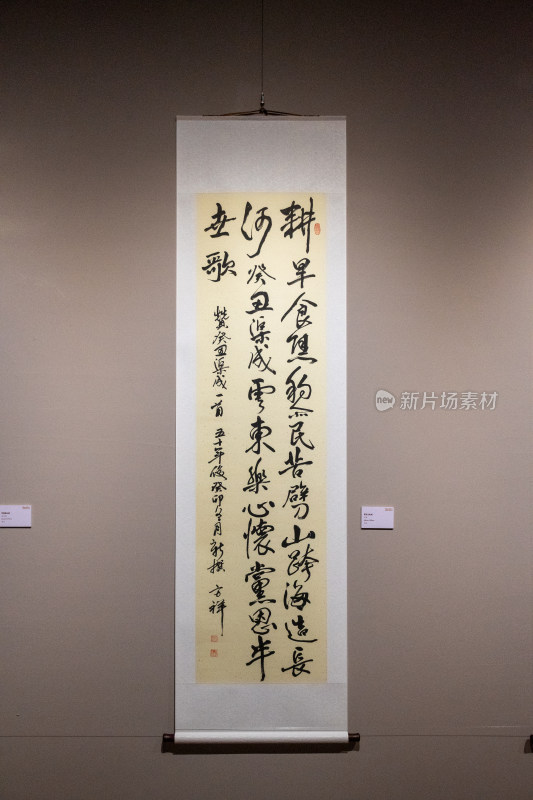 耕旱食黎民苦劈山跨海造長
河癸丑渠成雲東樂心懷黨恩半
世歌
贊癸丑渠成一首 五十年後癸卯月新撰 方祥
新片场素材